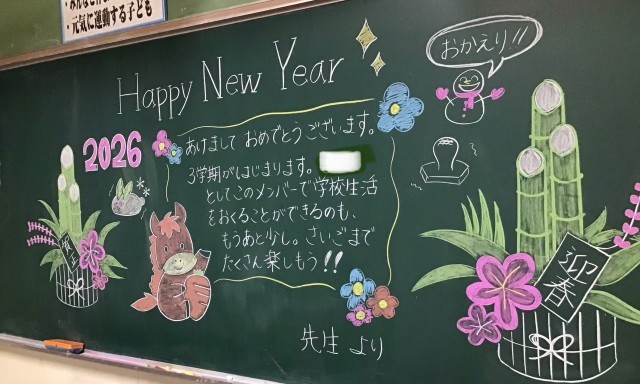 元気に運動する子ども
Happy New Year
おかえり!!
2026
あけまして おめでとうございます。
3学期がはじまります。
としてこのメンバーで学校生活
をおくることができるのも、
もうあと少し。さいごまで
たくさん楽しもう!!
先生 より
迎春